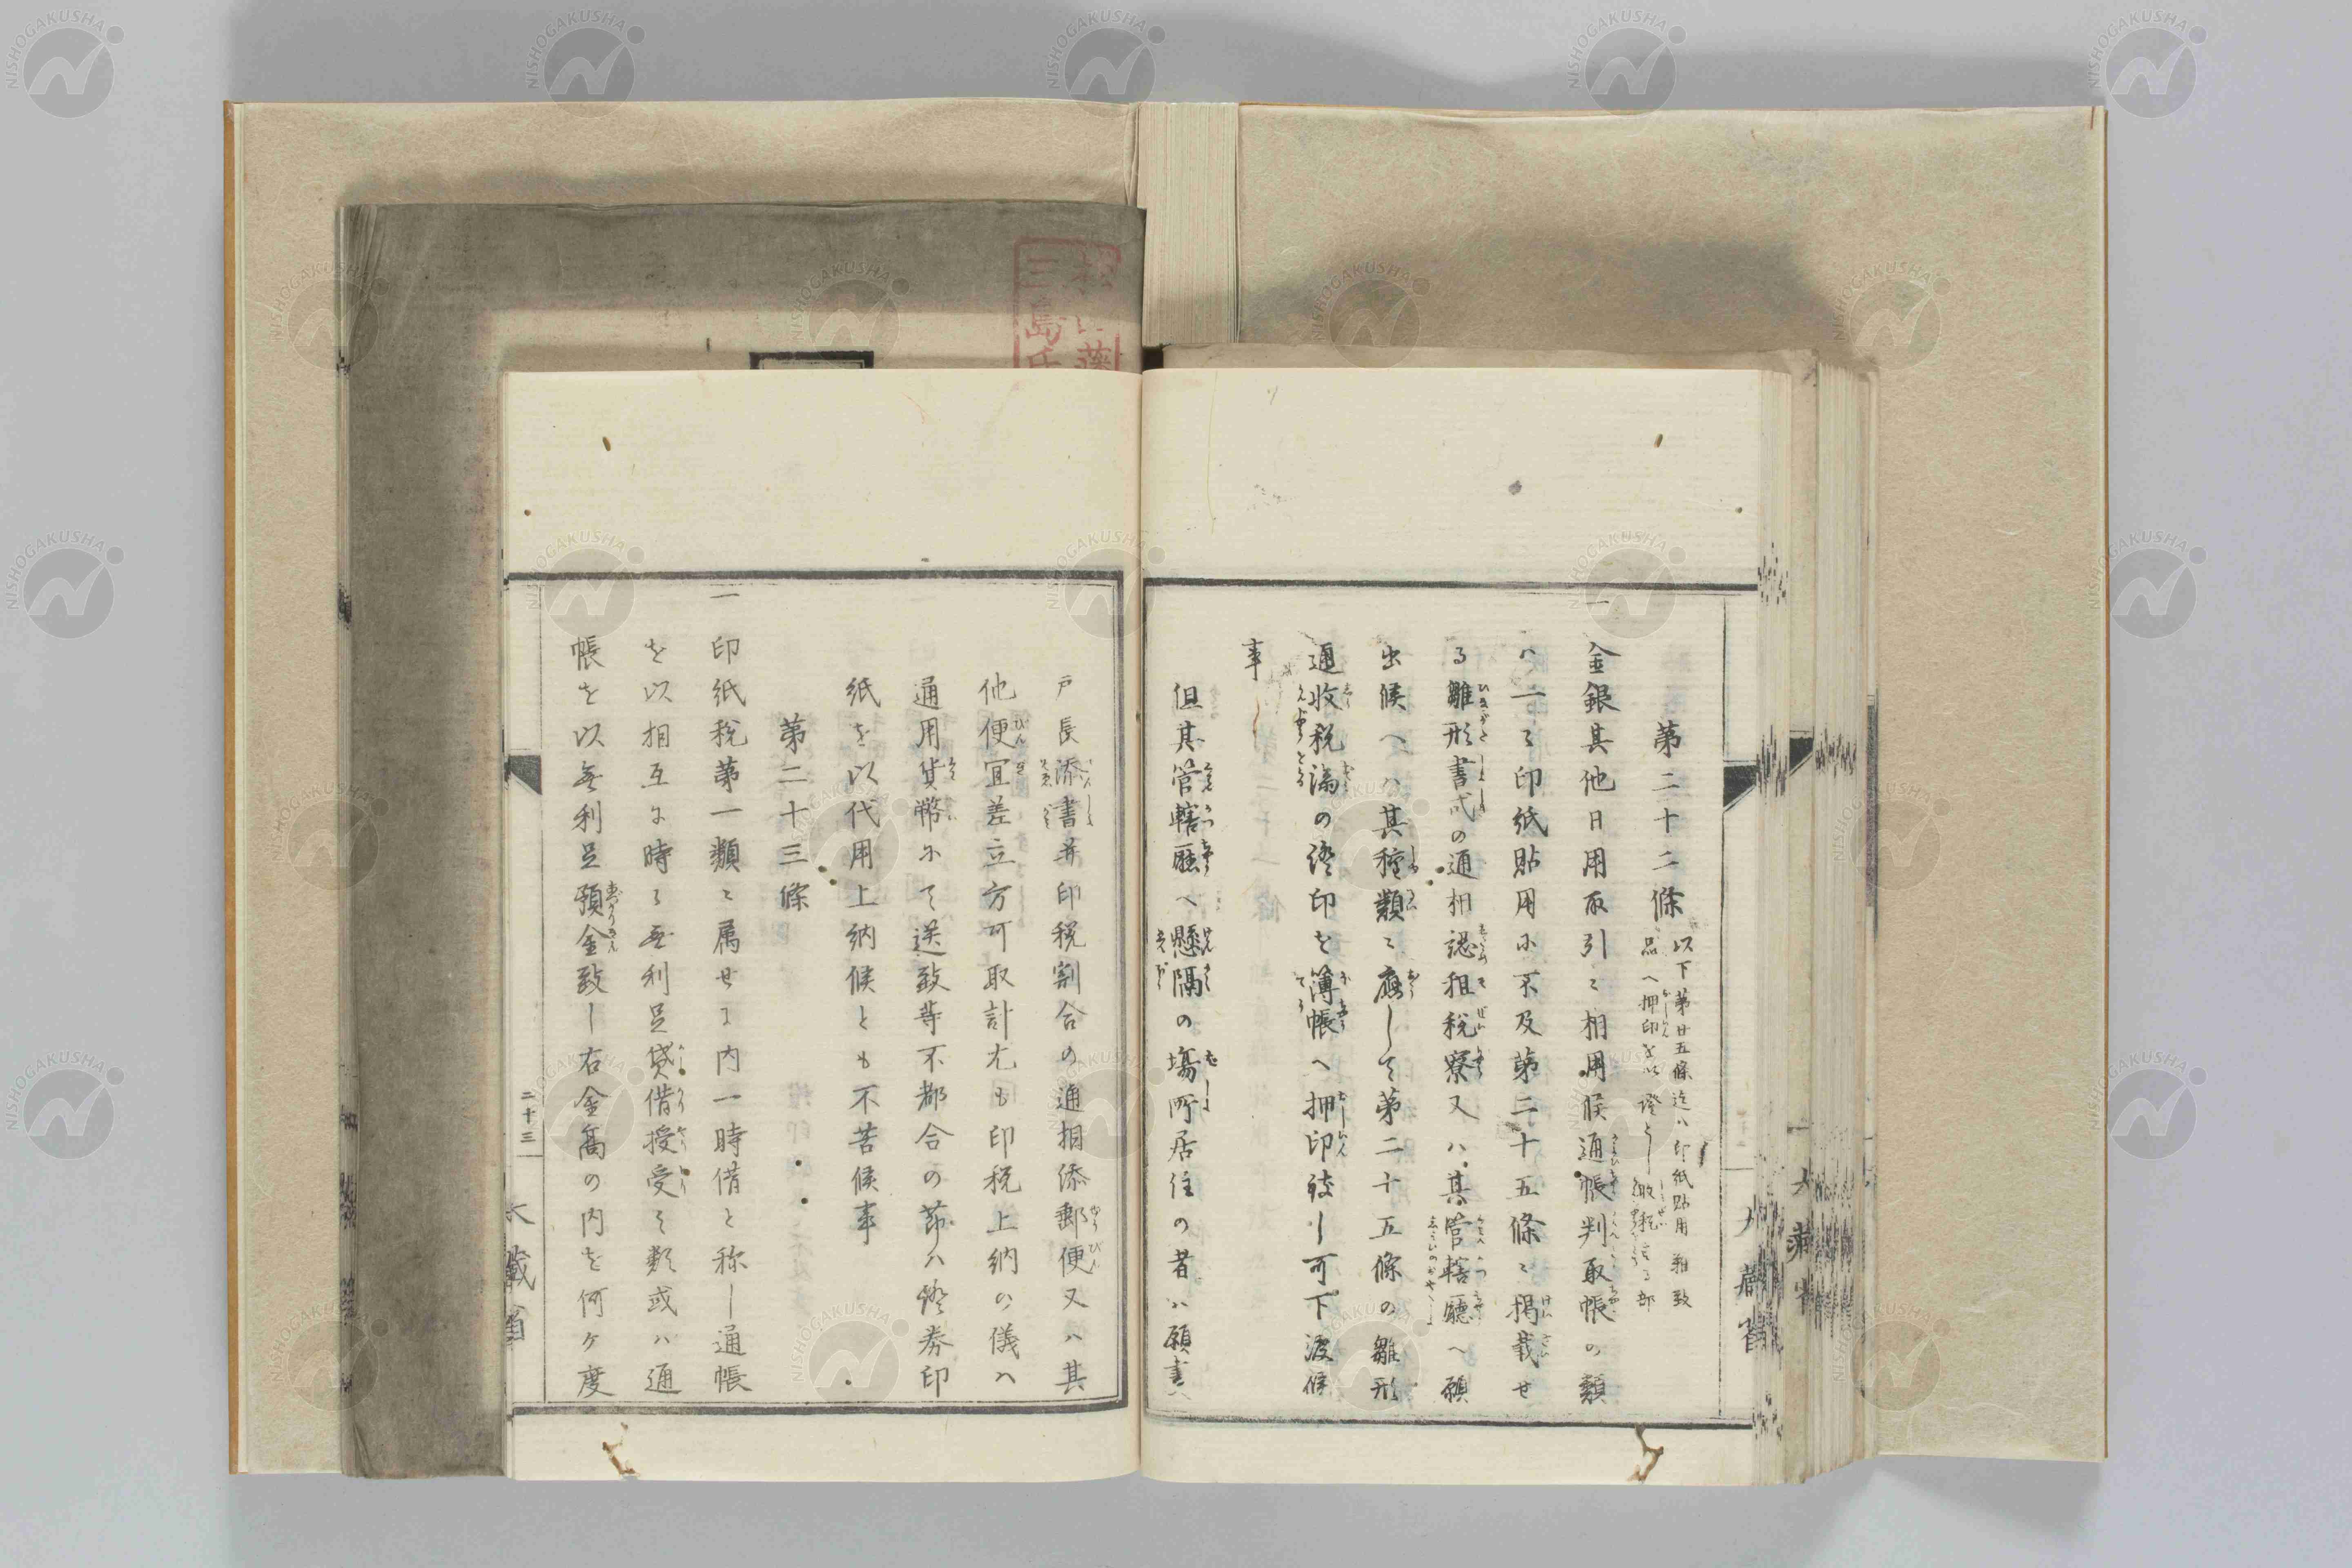 第二十二條
以下第廿五條迄ハ印紙貼用難致
品ヘ押印を以證とし收税する部
一金銀其他日用取引ニ相用候通帳判取帳の類
ハ一々印紙貼用小不及第二十五條ニ掲載せ
る雛形書式の通相認租税寮又ハ其管轄廳へ願
出候へハ其種類ニ應して第二十五條の雛形
通收税濟の證印を簿帳へ押印致し可下渡候
事
但其管轄廳へ懸隔の場所居住の者ハ願書へ
戸長添書并印税割合の通相添郵便又ハ其
他便宜差立方可取計尤も印税上納の儀ハ
通用貨幣にて送致等不都合の節ハ證券印
紙を以代用上納候とも不苦候事
第二十三條
一印紙税第一類ニ属せる内一時借と称し通帳
を以相互に時々無利足貸借授受之類或ハ通
帳を以無利足預金致し右金高の内を何ケ度
二十三
大藏省
大藏省
NISHOGAKUSHA